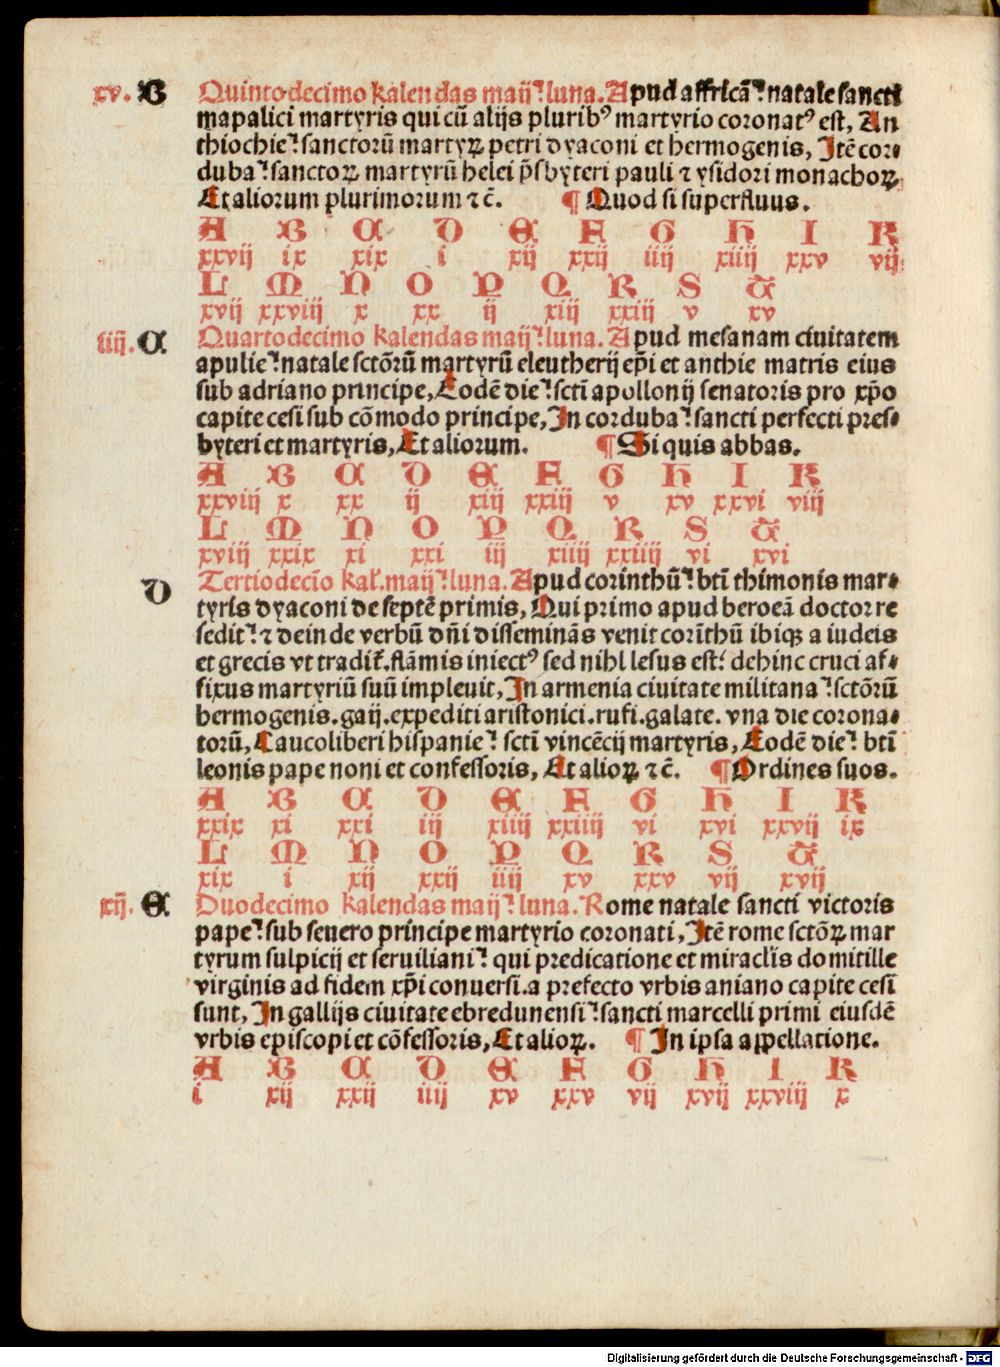 xv. B Quintodecimo kalendas maij⁊ luna. Apud affricā⁊ natale sancti
mapalici martyris qui cū alijs pluribꝰ martyrio coronatꝰ est, An
thiochie⁊ sanctorū martyꝝ petri dyaconi et hermogenis, Itē cor⸗
duba⁊ sanctoꝝ martyrū helei p̄sbyteri pauli ⁊ ysidori monachoꝝ
Et aliorum plurimorum ⁊ c̄. ¶ Quod si superfluus.
A B C D E F G H I K
xxvij ix xix i xij xxij iiij xiiij xxv vij
L M N O P Q R S T
xvij xxviij x xx ij xiij xxiij v xv
iiij. C Quartodecimo kalendas maij⁊ luna. Apud mesanam ciuitatem
apulie⁊ natale sctōrū martyrū eleutherij ep̄i et anthie matris eius
sub adriano principe, Eodē die⁊ sctī apollonij senatoris pro xp̄o
capite cesi sub cōmodo principe, In corduba⁊ sancti perfecti pres⸗
byteri et martyris, Et aliorum. ¶ Si quis abbas.
A B C D E F G H I K
xxviij x xx ij xiij xxiij v xv xxvi viij
L M N O P Q R S T
xviij xxix xi xxi iij xiiij xxiiij vi xvi
D Tertiodecīo kal̄. maij⁊ luna. Apud corinthū⁊ btī thimonis mar⸗
tyris dyaconi de septē primis, Qui primo apud beroeā doctor re
sedit⁊ ⁊ deinde verbū dn̄i disseminās venit corīthū ibiqꝫ a iudeis
et grecis vt tradit̄. flāmis iniectꝰ sed nihl lesus est⁊ dehinc cruci af⸗
fixus martyriū suū impleuit, In armenia ciuitate militana⁊ sctōrū
hermogenis. gaij. expediti aristonici. rufi. galate. vna die corona⸗
torū, Caucoliberi hispanie⁊ sctī vincēcij martyris, Eodē die⁊ btī
leonis pape noni et confessoris, Et alioꝝ ⁊ c̄. ¶ Ordines suos.
A B C D E F G H I K
xxix xi xxi iij xiiij xxiiij vi xvi xxvij ix
L M N O P Q R S T
xix i xij xxij iiij xv xxv vij xvij
xij. E Duodecimo kalendas maij⁊ luna. Rome natale sancti victoris
pape⁊ sub seuero principe martyrio coronati, Itē rome sctōꝝ mar
tyrum sulpicij et seruiliani⁊ qui predicatione et miraclīs domitille
virginis ad fidem xp̄i conuersi. a prefecto vrbis aniano capite cesī
sunt, In gallijs ciuitate ebredunensi⁊ sancti marcelli primi eiusdē
vrbis episcopi et cōfessoris, Et alioꝝ. ¶ In ipsa appellatione.
A B C D E F G H I K
i xij xxij iiij xv xxv vij xvij xxviij x
Digitalisierung gefördert durch die Deutsche Forschungsgemeinschaft - DFG